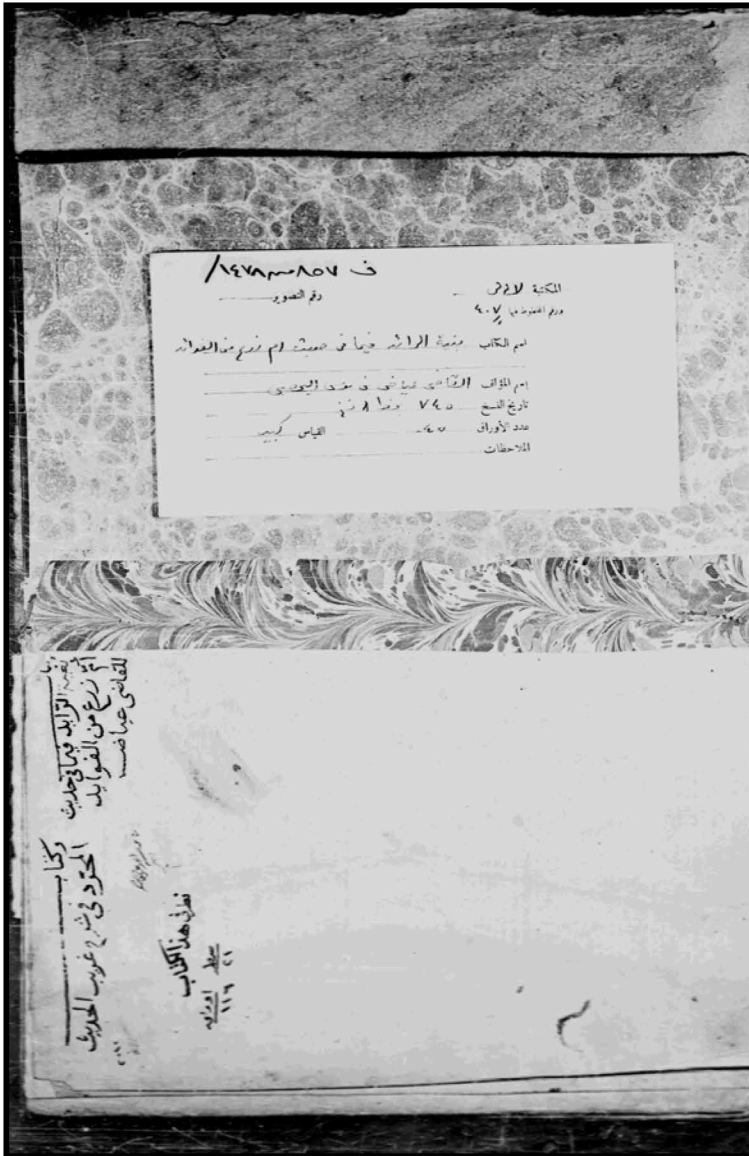 ف ٨٥٧ /١٤٧٨
المكتبة لاله لى
رقم التصوير
ورقم المخطوط فيها ٤٠٧
اسم الكتاب بغية الرائد فيما فى حديث ام زرع من الفوائد
إسم المؤلف القاضى عياض بن موسى اليحصبى
تاريخ النسخ ٧٤٥
عدد الأوراق ٤٠ القياس كبير
الملاحظات
بغية الرايد فيما فى حديث
أم زرع من الفوايد
للقاضى عياض
وكتاب
المجرد فى شرح غريب الحديث
هذا الكتاب
سطر
٢١
اوراق
١١٦